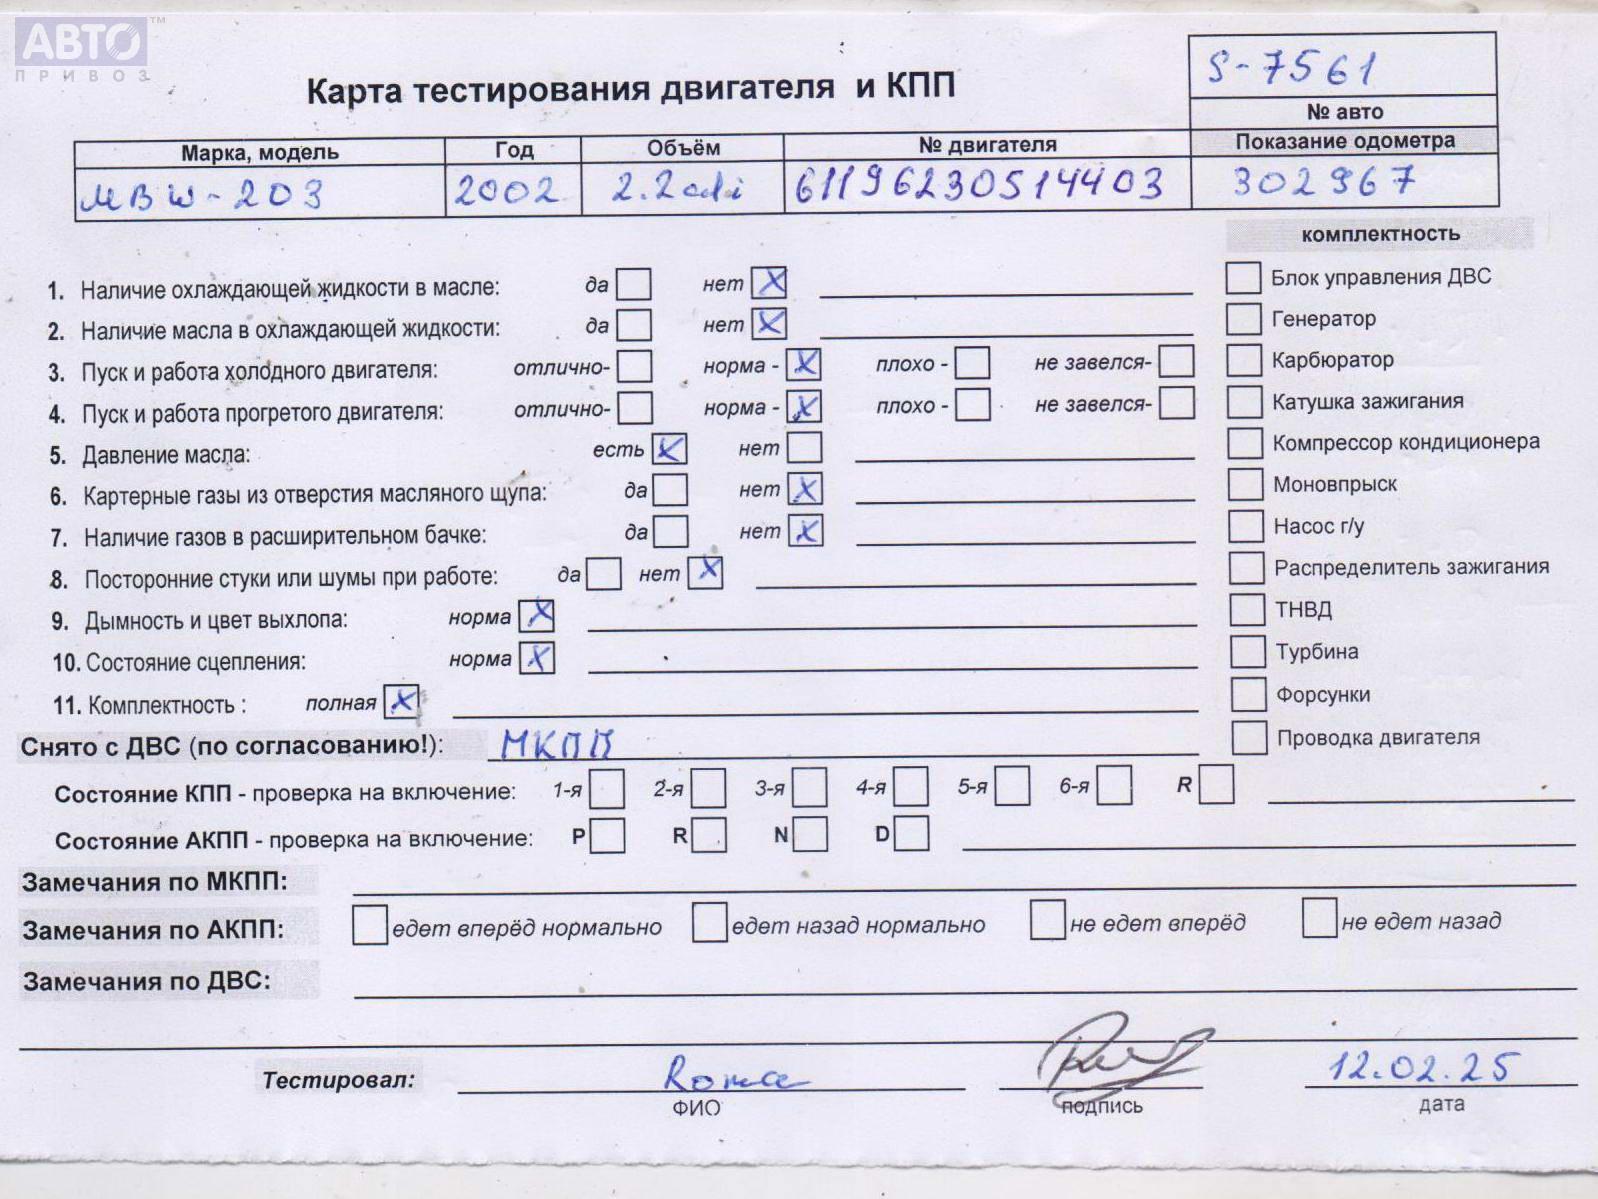 АВТО ™
ПРИВОЗ
Карта тестирования двигателя и КПП
S-7561
№ авто
Марка, модель Год Объём № двигателя Показание одометра
MBW-203 2002 2.2cdi 61196230514403 302967
комплектность
1. Наличие охлаждающей жидкости в масле: да нет X
Блок управления ДВС
2. Наличие масла в охлаждающей жидкости: да нет X
Генератор
3. Пуск и работа холодного двигателя: отлично- норма - X плохо - не завелся-
Карбюратор
4. Пуск и работа прогретого двигателя: отлично- норма - X плохо - не завелся-
Катушка зажигания
5. Давление масла: есть X нет
Компрессор кондиционера
6. Картерные газы из отверстия масляного щупа: да нет X
Моновпрыск
7. Наличие газов в расширительном бачке: да нет X
Насос г/у
8. Посторонние стуки или шумы при работе: да нет X
Распределитель зажигания
9. Дымность и цвет выхлопа: норма X
ТНВД
10. Состояние сцепления: норма X
Турбина
11. Комплектность : полная X
Форсунки
Снято с ДВС (по согласованию!): МКПП
Проводка двигателя
Состояние КПП - проверка на включение: 1-я 2-я 3-я 4-я 5-я 6-я R
Состояние АКПП - проверка на включение: P R N D
Замечания по МКПП:
Замечания по АКПП: едет вперёд нормально едет назад нормально не едет вперёд не едет назад
Замечания по ДВС:
Тестировал: Рома 12.02.25
ФИО подпись дата